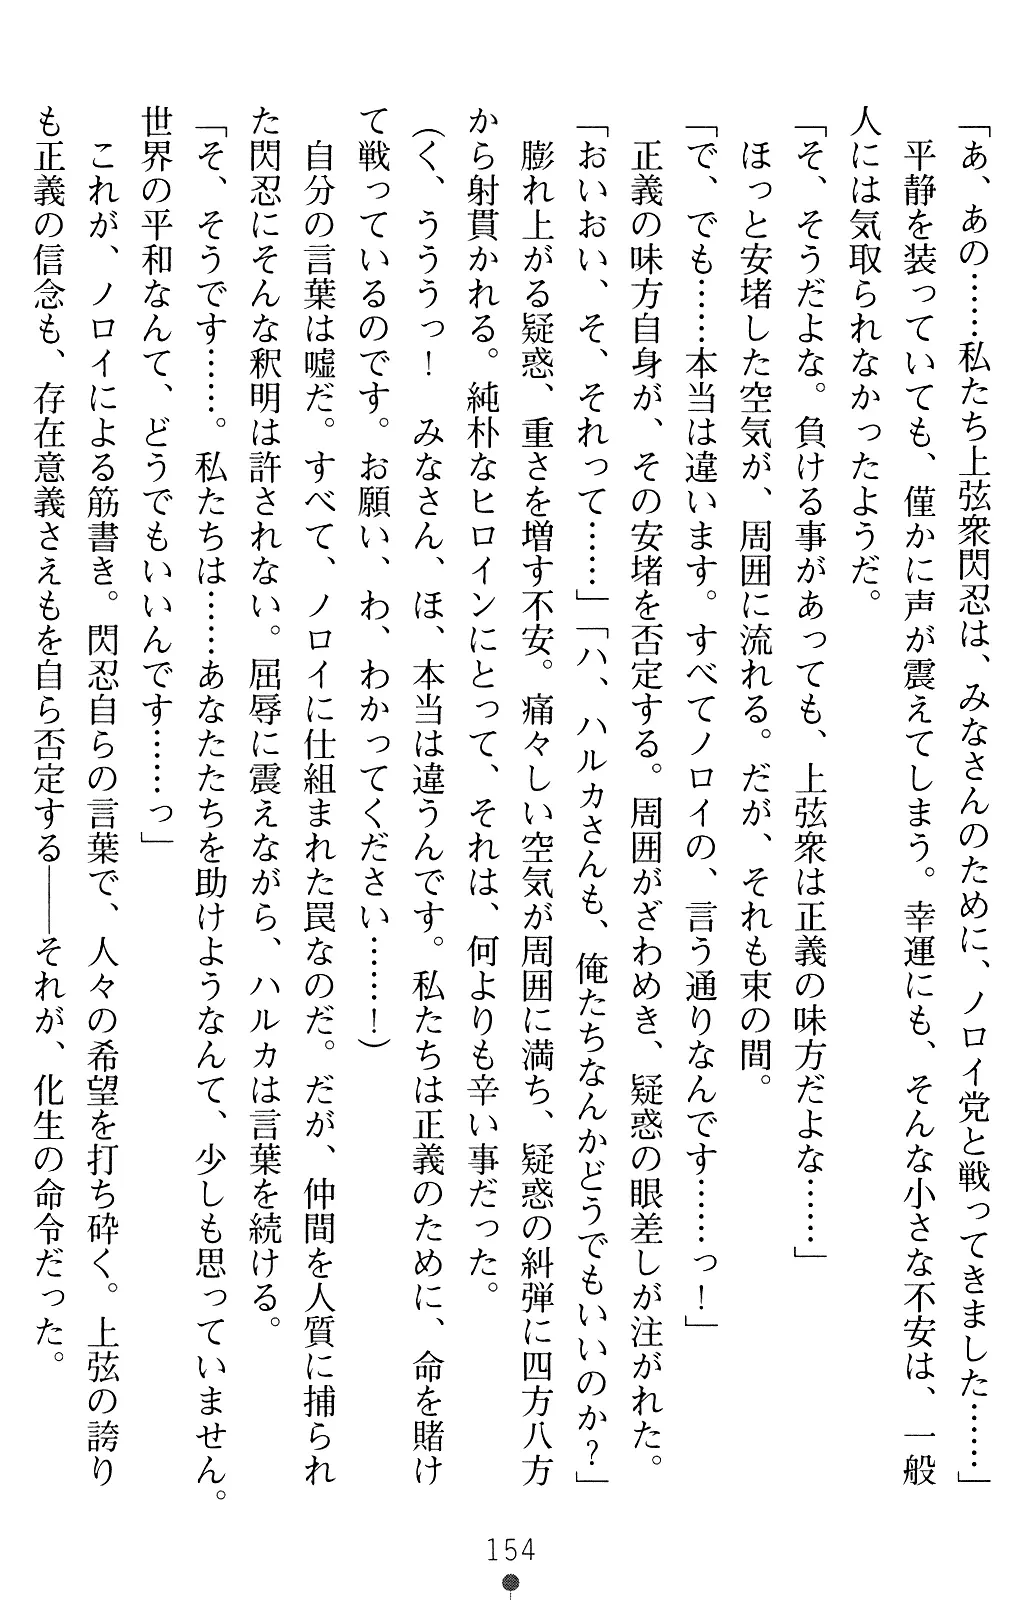 「あ、あの……私たち上弦衆閃忍は、みなさんのために、ノロイ党と戦ってきました……」
　平静を装っていても、僅かに声が震えてしまう。幸運にも、そんな小さな不安は、一般
人には気取られなかったようだ。
「そ、そうだよな。負ける事があっても、上弦衆は正義の味方だよな……」
　ほっと安堵した空気が、周囲に流れる。だが、それも束の間。
「で、でも……本当は違います。すべてノロイの、言う通りなんです……っ！」
　正義の味方自身が、その安堵を否定する。周囲がざわめき、疑惑の眼差しが注がれた。
「おいおい、そ、それって……」「ハ、ハルカさんも、俺たちなんかどうでもいいのか？」
　膨れ上がる疑惑、重さを増す不安。痛々しい空気が周囲に満ち、疑惑の糾弾に四方八方
から射貫かれる。純朴なヒロインにとって、それは、何よりも辛い事だった。
（く、うううっ！　みなさん、ほ、本当は違うんです。私たちは正義のために、命を賭け
て戦っているのです。お願い、わ、わかってください……！）
　自分の言葉は嘘だ。すべて、ノロイに仕組まれた罠なのだ。だが、仲間を人質に捕られ
た閃忍にそんな釈明は許されない。屈辱に震えながら、ハルカは言葉を続ける。
「そ、そうです……。私たちは……あなたたちを助けようなんて、少しも思っていません。
世界の平和なんて、どうでもいいんです……っ」
　これが、ノロイによる筋書き。閃忍自らの言葉で、人々の希望を打ち砕く。上弦の誇り
も正義の信念も、存在意義さえもを自ら否定する――それが、化生の命令だった。
154